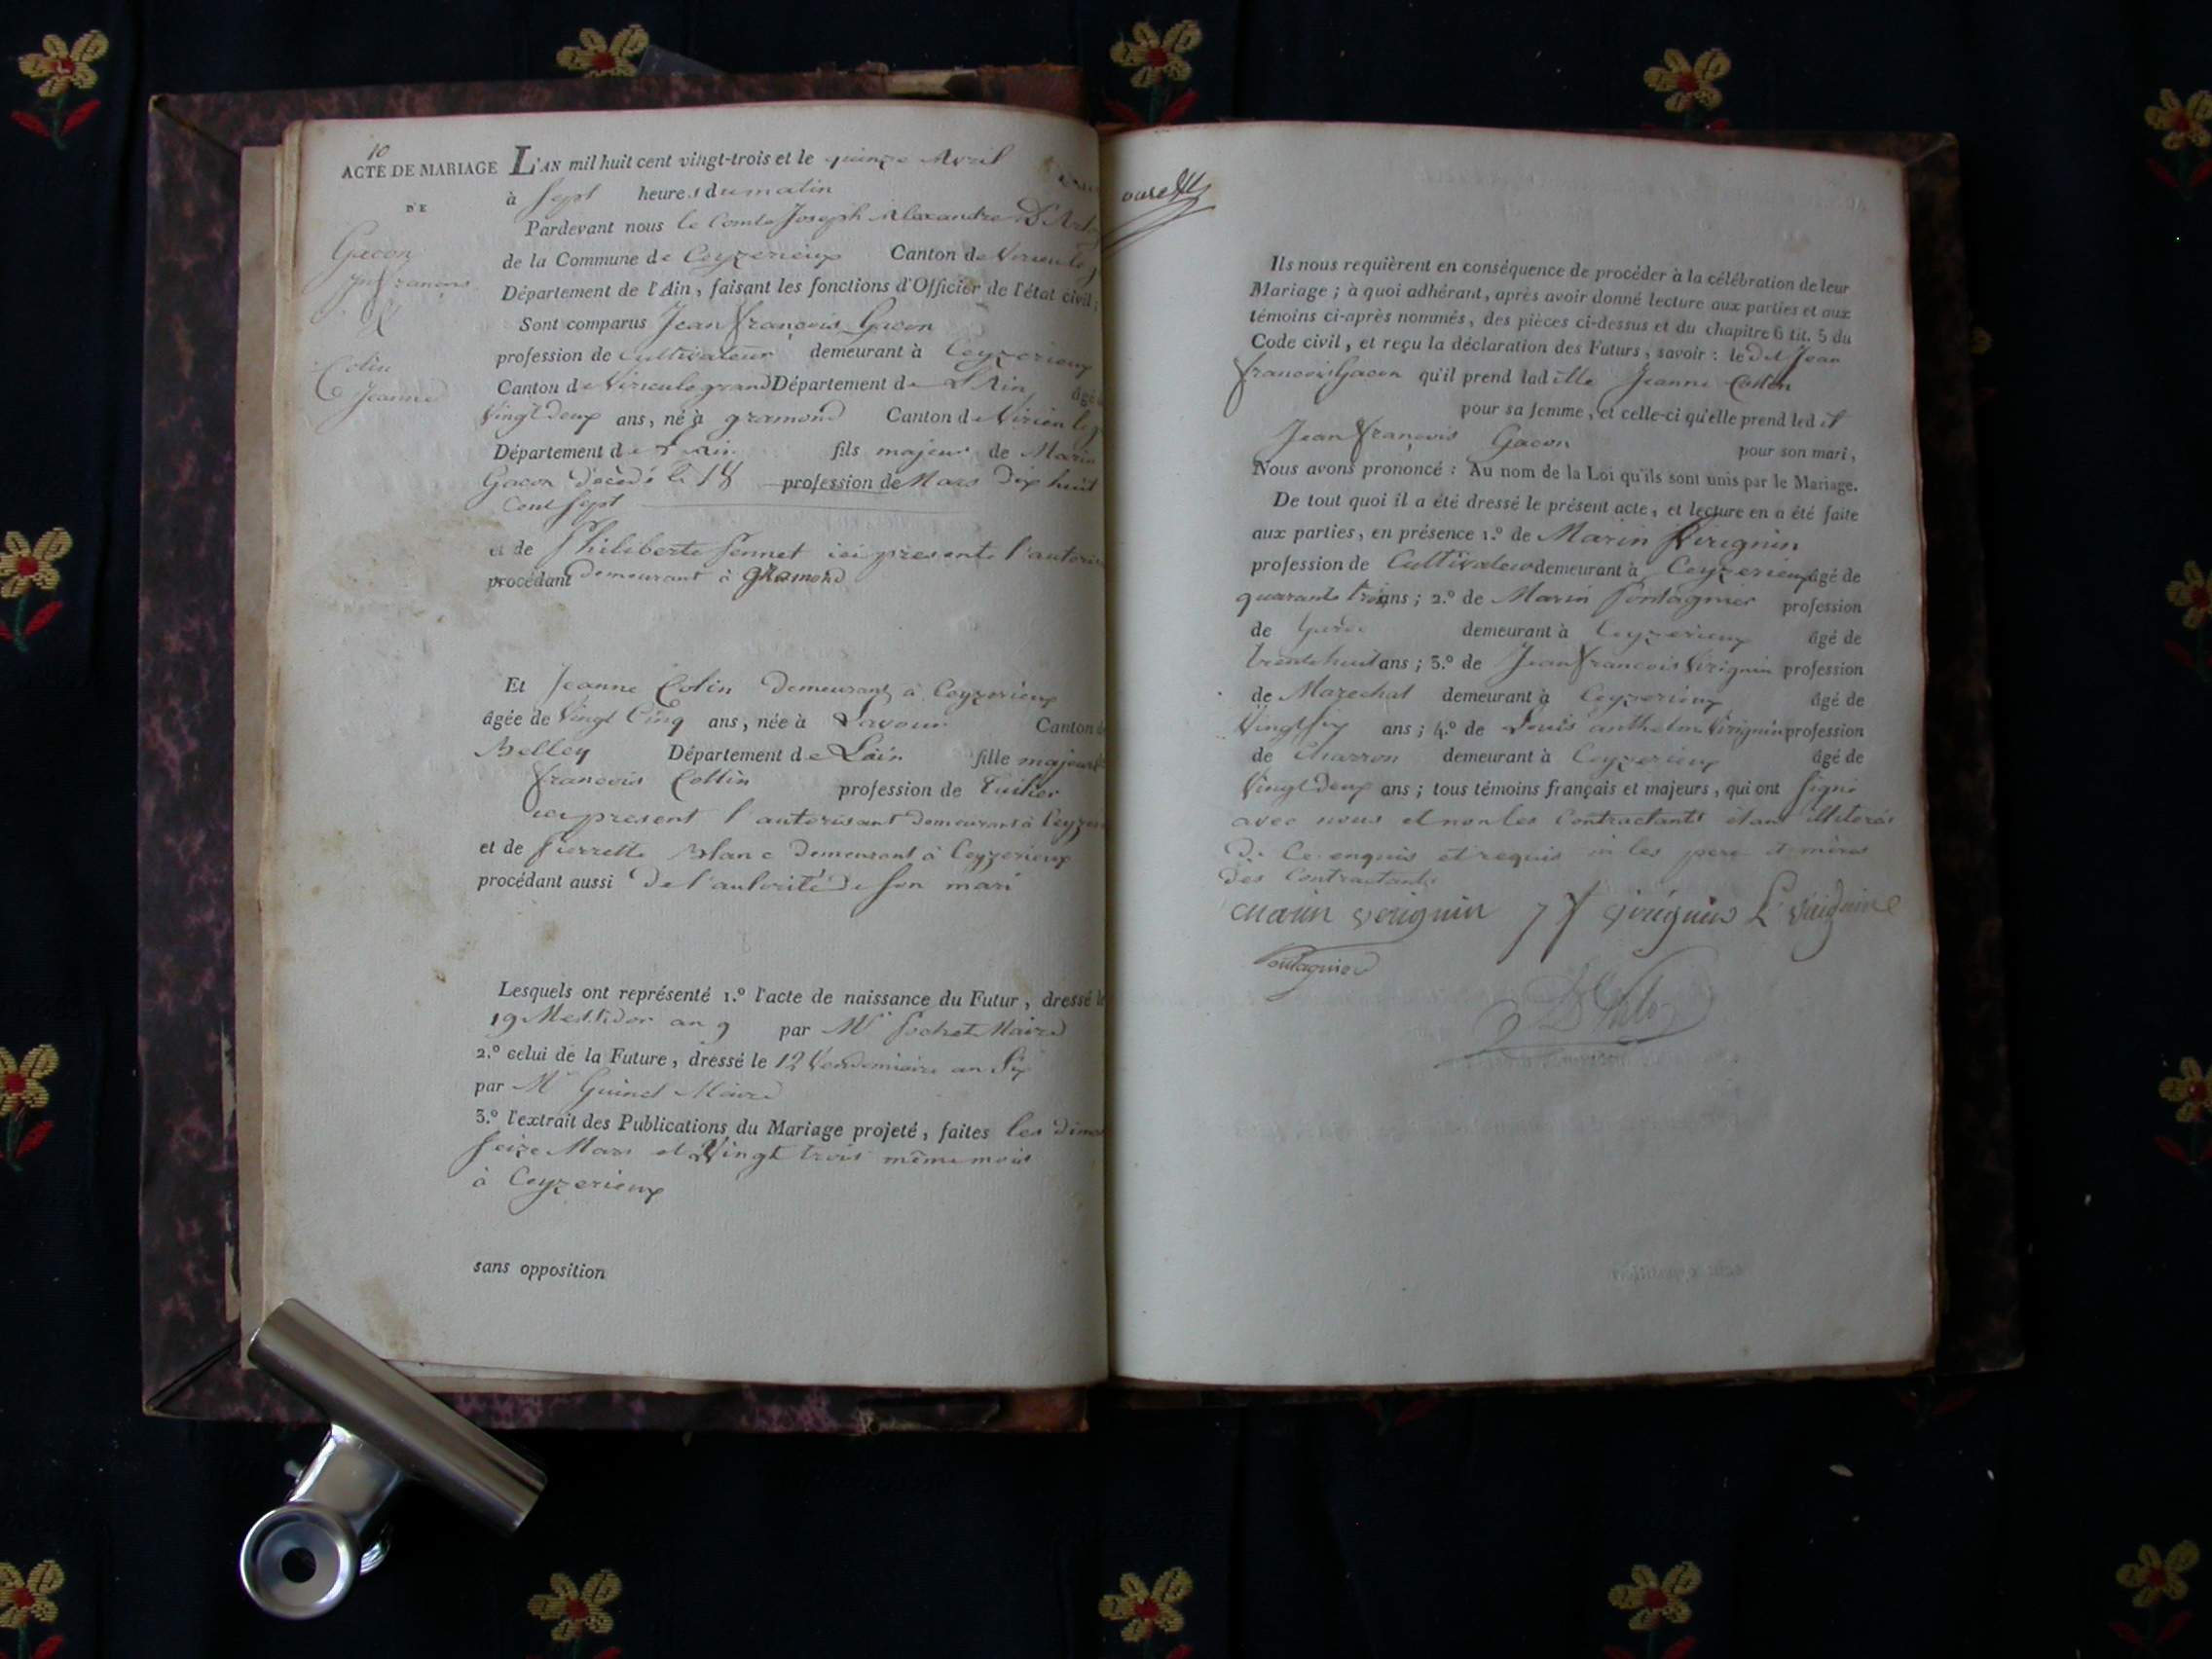 10
ACTE DE MARIAGE
DE
Gacon
Jn François
&
Colin
Jeanne
L'AN mil huit cent vingt-trois et le quinze Avril
à Sept heures du matin
Pardevant nous le Comte Joseph Alexandre D'Arlo
de la Commune de Ceyzerieux Canton de Virieu le g
Département de l'Ain, faisant les fonctions d'Officier de l'état civil;
Sont comparus Jean François Gacon
profession de Cultivateur demeurant à Ceyzerieux
Canton de Virieu le grand Département de L'Ain âgé d
Vingt deux ans, né à gramond Canton de Virieu le g
Département de Lain fils majeur de Marin
Gacon décédé le 18 profession de Mars Dix huit
Cent Sept
et de Philiberte Pennet ici presente l'autoris
procédant demeurant à gramond
Et Jeanne Colin Demeurant à Ceyzerieux
âgée de Vingt Cinq ans, née à Lavour Canton d
Belley Département de Lain fille majeure
François Collin profession de Tuilier
ici present l'autorisant Demeurant à Ceyzeri
et de Pierrette Blanc Demeurant à Ceyzerieux
procédant aussi De l'autorité de Son mari
Lesquels ont représenté 1.º l'acte de naissance du Futur, dressé le
19 Messidor an 9 par Mr Pochet Maire
2.º celui de la Future, dressé le 12 Vendemiaire an Six
par Mr Guinet Maire
3.º l'extrait des Publications du Mariage projeté, faites les dima
Seize Mars et Vingt trois même mois
à Ceyzerieux
sans opposition
Ils nous requièrent en conséquence de procéder à la célébration de leur
Mariage; à quoi adhérant, après avoir donné lecture aux parties et aux
témoins ci-après nommés, des pièces ci-dessus et du chapitre 6 tit. 5 du
Code civil, et reçu la déclaration des Futurs, savoir: le dit Jean
François Gacon qu'il prend ladite Jeanne Collin
pour sa femme, et celle-ci qu'elle prend ledit
Jean François Gacon pour son mari,
Nous avons prononcé: Au nom de la Loi qu'ils sont unis par le Mariage.
De tout quoi il a été dressé le présent acte, et lecture en a été faite
aux parties, en présence 1.º de Marin Virignin
profession de Cultivateur demeurant à Ceyzerieux âgé de
quarante trois ans; 2.º de Marin Pontagnier profession
de Garde demeurant à Ceyzerieux âgé de
trente huit ans; 3.º de Jean François Virignin profession
de Marechal demeurant à Ceyzerieux âgé de
Vingt Six ans; 4.º de Louis anthelme Virignin profession
de Charron demeurant à Ceyzerieux âgé de
Vingt Deux ans; tous témoins français et majeurs, qui ont Signé
avec nous et non les Contractants étant illiterés
De Ce enquis et requis ni les pere et mères
des Contractants
Marin virignin J f virignin L Virignin
Pontagnier